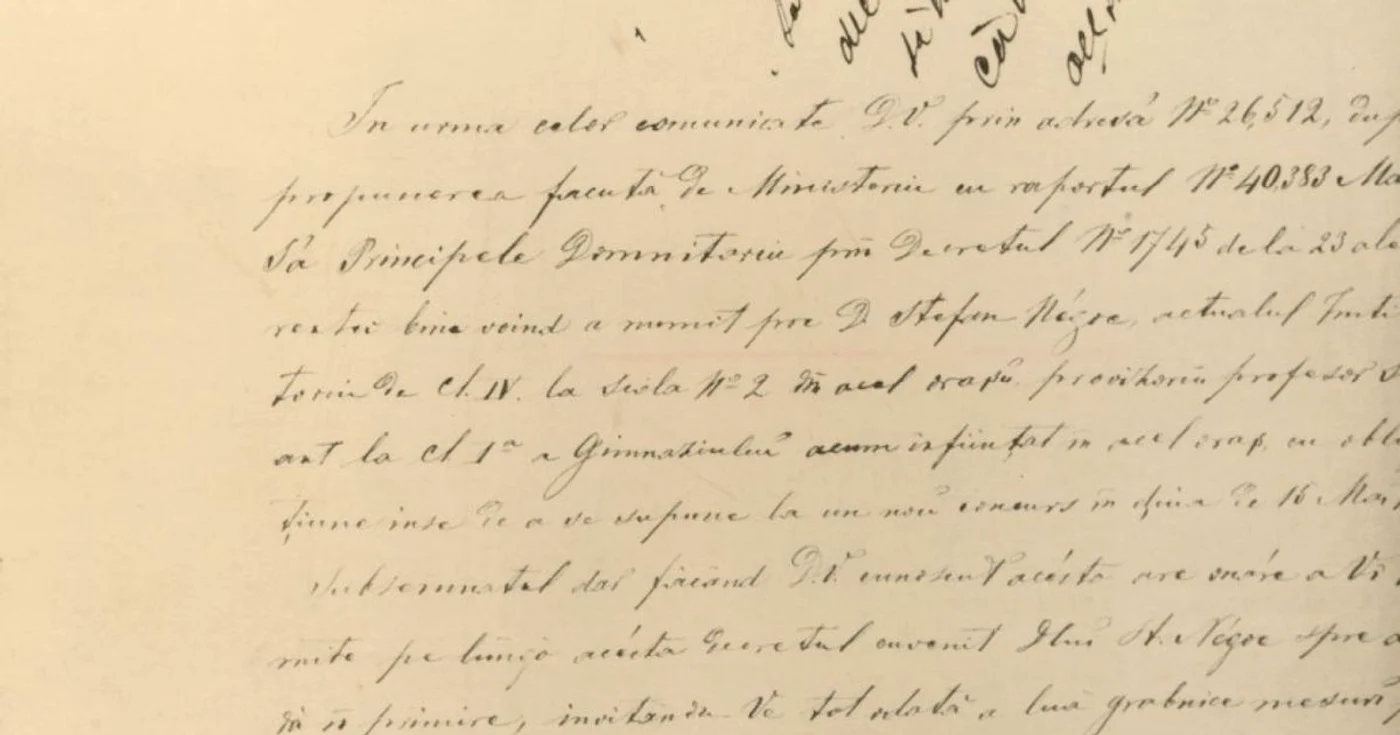 In urma celor comunicate D.V. prin adresá No 26,512, dup
propunerea facută de Ministeriu cu raportul No 40,383 Ma
Sa Principele Domnitoriu prin Decretul No 1745 de la 23 ale
rentei bine voind a numit pre D. Stefan Négoe, actualul Insti
toriu de cl. IV. la scola No 2 din acel orașu, provisoriu profesor s
ant la cl. 1a a Gimnasiului acum înființat în acel oraș, cu obli
țiune inse de a se supune la un nou concurs in ḑiua de 15 Mar
Subsemnatul dar făcând D.V. cunoscut acésta are onóre a Vĕ
mite pe lungo acésta decretul cuvenit Dlui St. Négoe spre
dă in primire, invitându Ve tot odată a lua grabnice mesuri